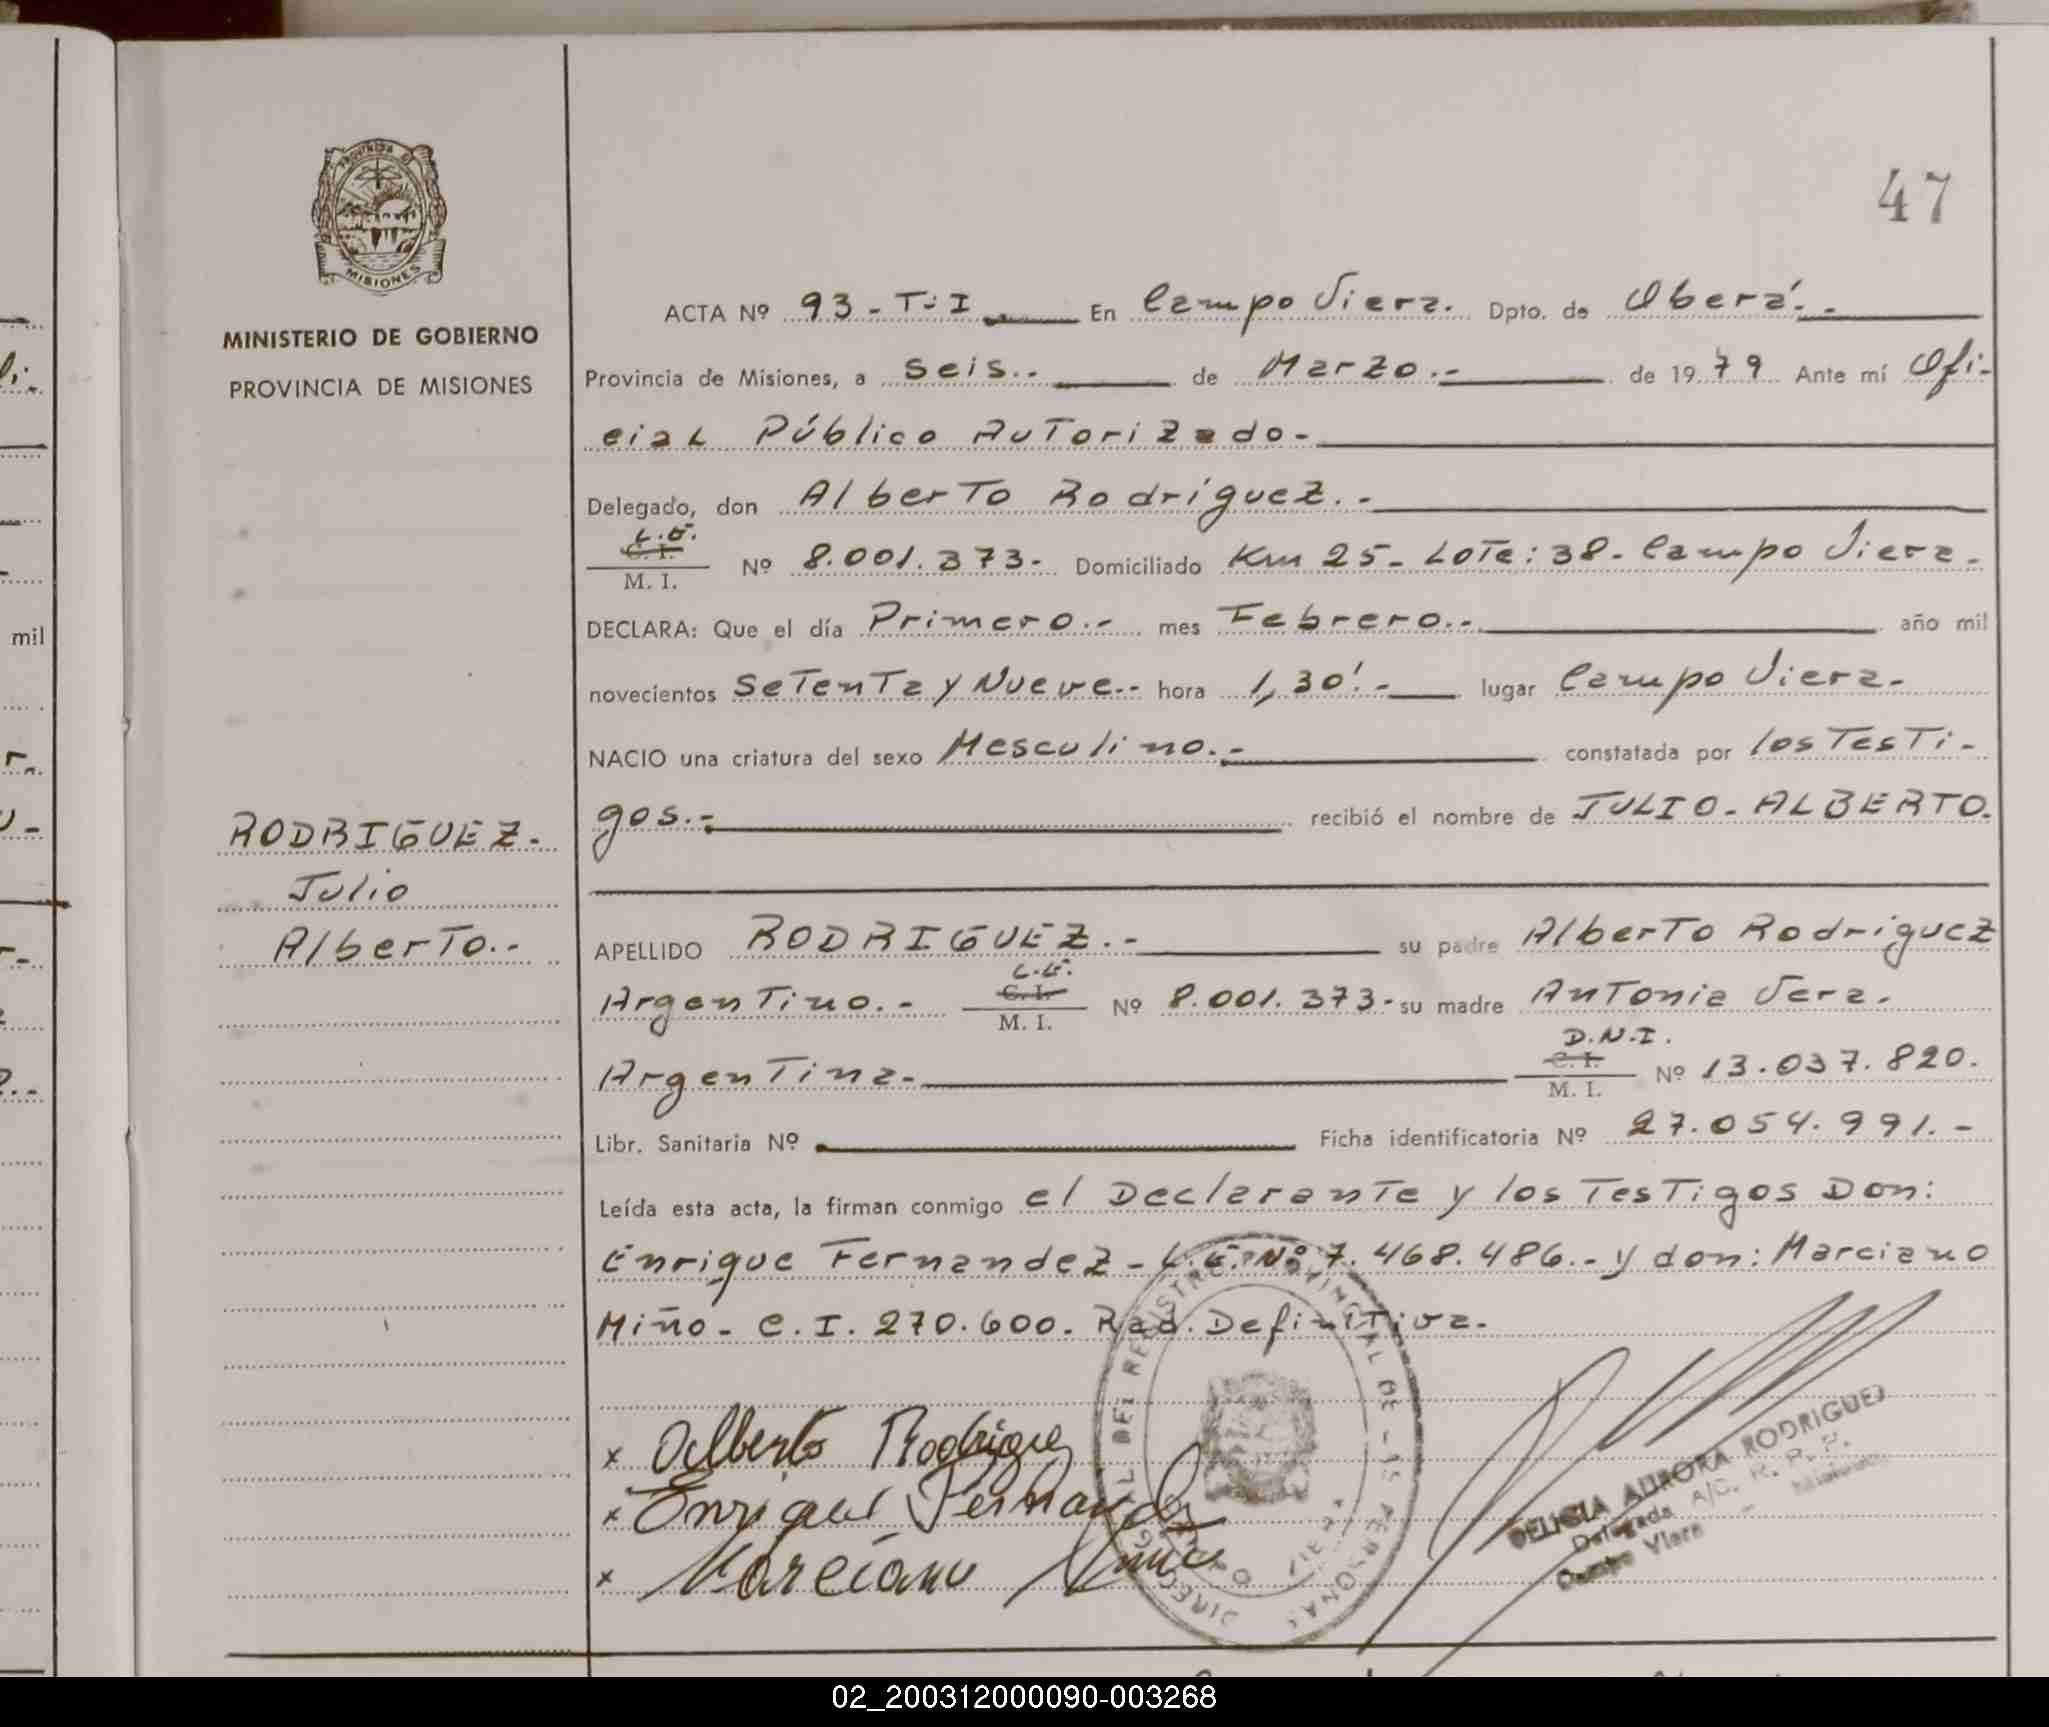 47
PROVINCIA DE
MISIONES
MINISTERIO DE GOBIERNO
PROVINCIA DE MISIONES
RODRIGUEZ.
Julio
Alberto.-
ACTA Nº 93 - T: I En Campo Viera. Dpto. de Oberá.-
Provincia de Misiones, a seis.- de Marzo.- de 1979 Ante mí Ofi-
cial Público Autorizado-
Delegado, don Alberto Rodríguez.-
L.E.
C. I.
M. I. Nº 8.001.373- Domiciliado Km 25- Lote: 38- Campo Viera-
DECLARA: Que el día Primero.- mes Febrero.- año mil
novecientos Setenta y Nueve.- hora 1,30'.- lugar Campo Viera-
NACIO una criatura del sexo Mesculino.- constatada por los Testi-
gos.- recibió el nombre de JULIO-ALBERTO.
APELLIDO RODRIGUEZ.- su padre Alberto Rodriguez
L.E.
Argentino.- C. I.
M. I. Nº 8.001.373- su madre Antonia Vera.
D.N.I.
Argentina- C. I.
M. I. Nº 13.037.820.
Libr. Sanitaria Nº Ficha identificatoria Nº 27.054.991.-
Leída esta acta, la firman conmigo el Declarante y los Testigos Don:
Enrique Fernandez- L.E. Nº 7.468.486.- y don: Marciano
Miño- C.I. 270.600. Rad. Definitiva-
x Alberto Rodriguez
x Enrique Fernandez
x Marciano Miño
DELICIA AURORA RODRIGUEZ
Delegada A/C. R. P. P.
Campo Viera - Misiones
02_200312000090-003268